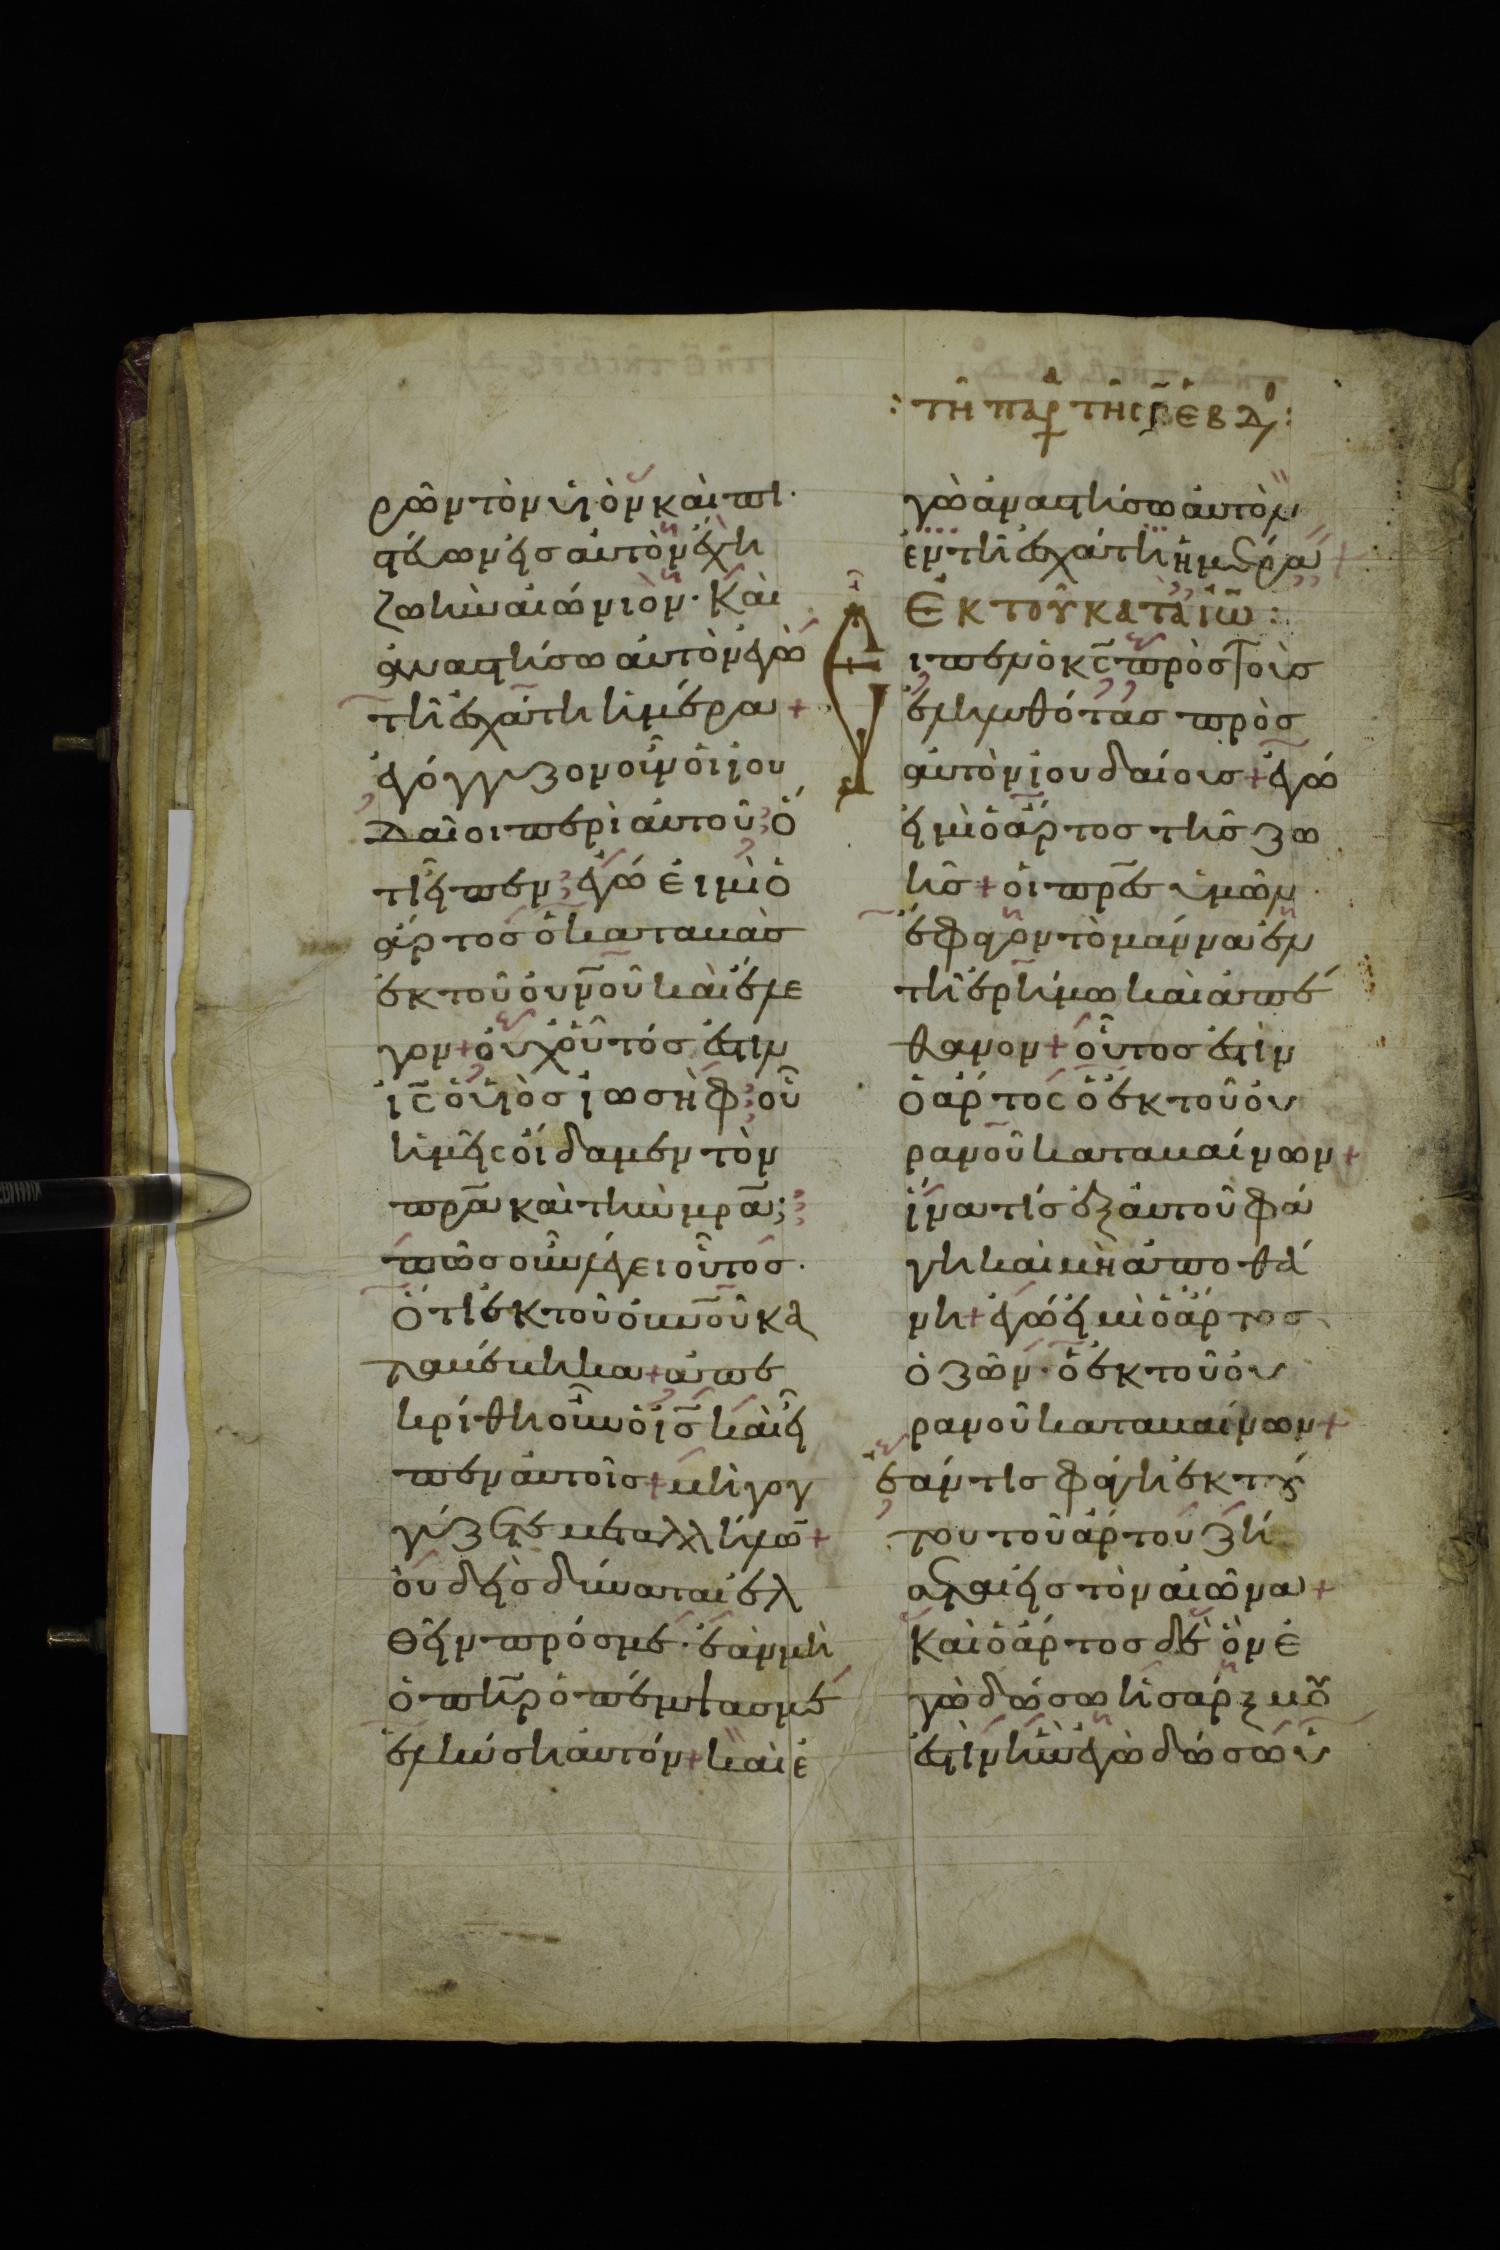 ρῶν τὸν υἱὸν καὶ πι
στεύων εἰσ αὐτὸν ἔχη
ζωὴν αἰώνιον· Καὶ
ἀναστήσω αὐτὸν ἐγὼ
τῆ ἐσχάτη ἡμέρα +
ἐγόγγυζον οὖν οἱ ἰου
δαῖοι περὶ αὐτοῦ· ὅ
τι εἶπεν· ἐγώ εἰμι ὁ
ἄρτοσ ὁ καταβὰσ
ἐκ τοῦ οὐνοῦ καὶ ἔλε
γον + οὐχ οὗτόσ ἐστιν
ις ὁ υἱὸσ ἰωσὴφ· οὗ
ἡμεῖς οἴδαμεν τὸν
πρα καὶ τὴν μρα;
πῶσ οὖν λέγει οὗτοσ·
Ὅτι ἐκ τοῦ οὐνοῦ κα
ταβέβηκα + ἀπε
κρίθη οὖν ὁ ις καὶ εἶ
πεν αὐτοῖσ + μὴ γογ
γύζετε μεταλλήλων +
οὐδεὶσ δύναται ἐλ
θεῖν πρόσ με· ἐὰν μὴ
ὁ πηρ ὁ πέμψασ με
ἑλκύση αὐτόν + καὶ ἐ
: τῆ παρ τῆς ς ἑβδο :
γὼ ἀναστήσω αὐτὸν
ἐν τῆ ἐσχάτη ἡμέρα +
Ἐκ τοῦ κατὰ ἰω :
Εἶπεν ὁ κς πρὸσ τοὺσ
ἐληλυθότασ πρὸσ
αὐτὸν ἰουδαίουσ + ἐγώ
εἰμι ὁ ἄρτοσ τῆσ ζω
ῆσ + οἱ πρεσ ὑμῶν
ἔφαγον τὸ μάννα ἐν
τῆ ἐρήμω καὶ ἀπέ
θανον + οὗτοσ ἐστιν
ὁ ἄρτος ὁ ἐκ τοῦ οὐ
ρανοῦ καταβαίνων +
ἵνα τίσ ἐξ αὐτοῦ φά
γη καὶ μὴ ἀποθά
νη + ἐγώ εἰμι ὁ ἄρτοσ
ὁ ζῶν· ὁ ἐκ τοῦ οὐ
ρανοῦ καταβαίνων +
ἐάν τισ φάγη ἐκ τού
του τοῦ ἄρτου ζή
σεται εἰσ τὸν αἰῶνα +
Καὶ ὁ ἄρτοσ δὲ ὃν ἐ
γὼ δώσω ἡ σάρξ μου
ἐστιν ἣν ἐγὼ δώσω ὑ